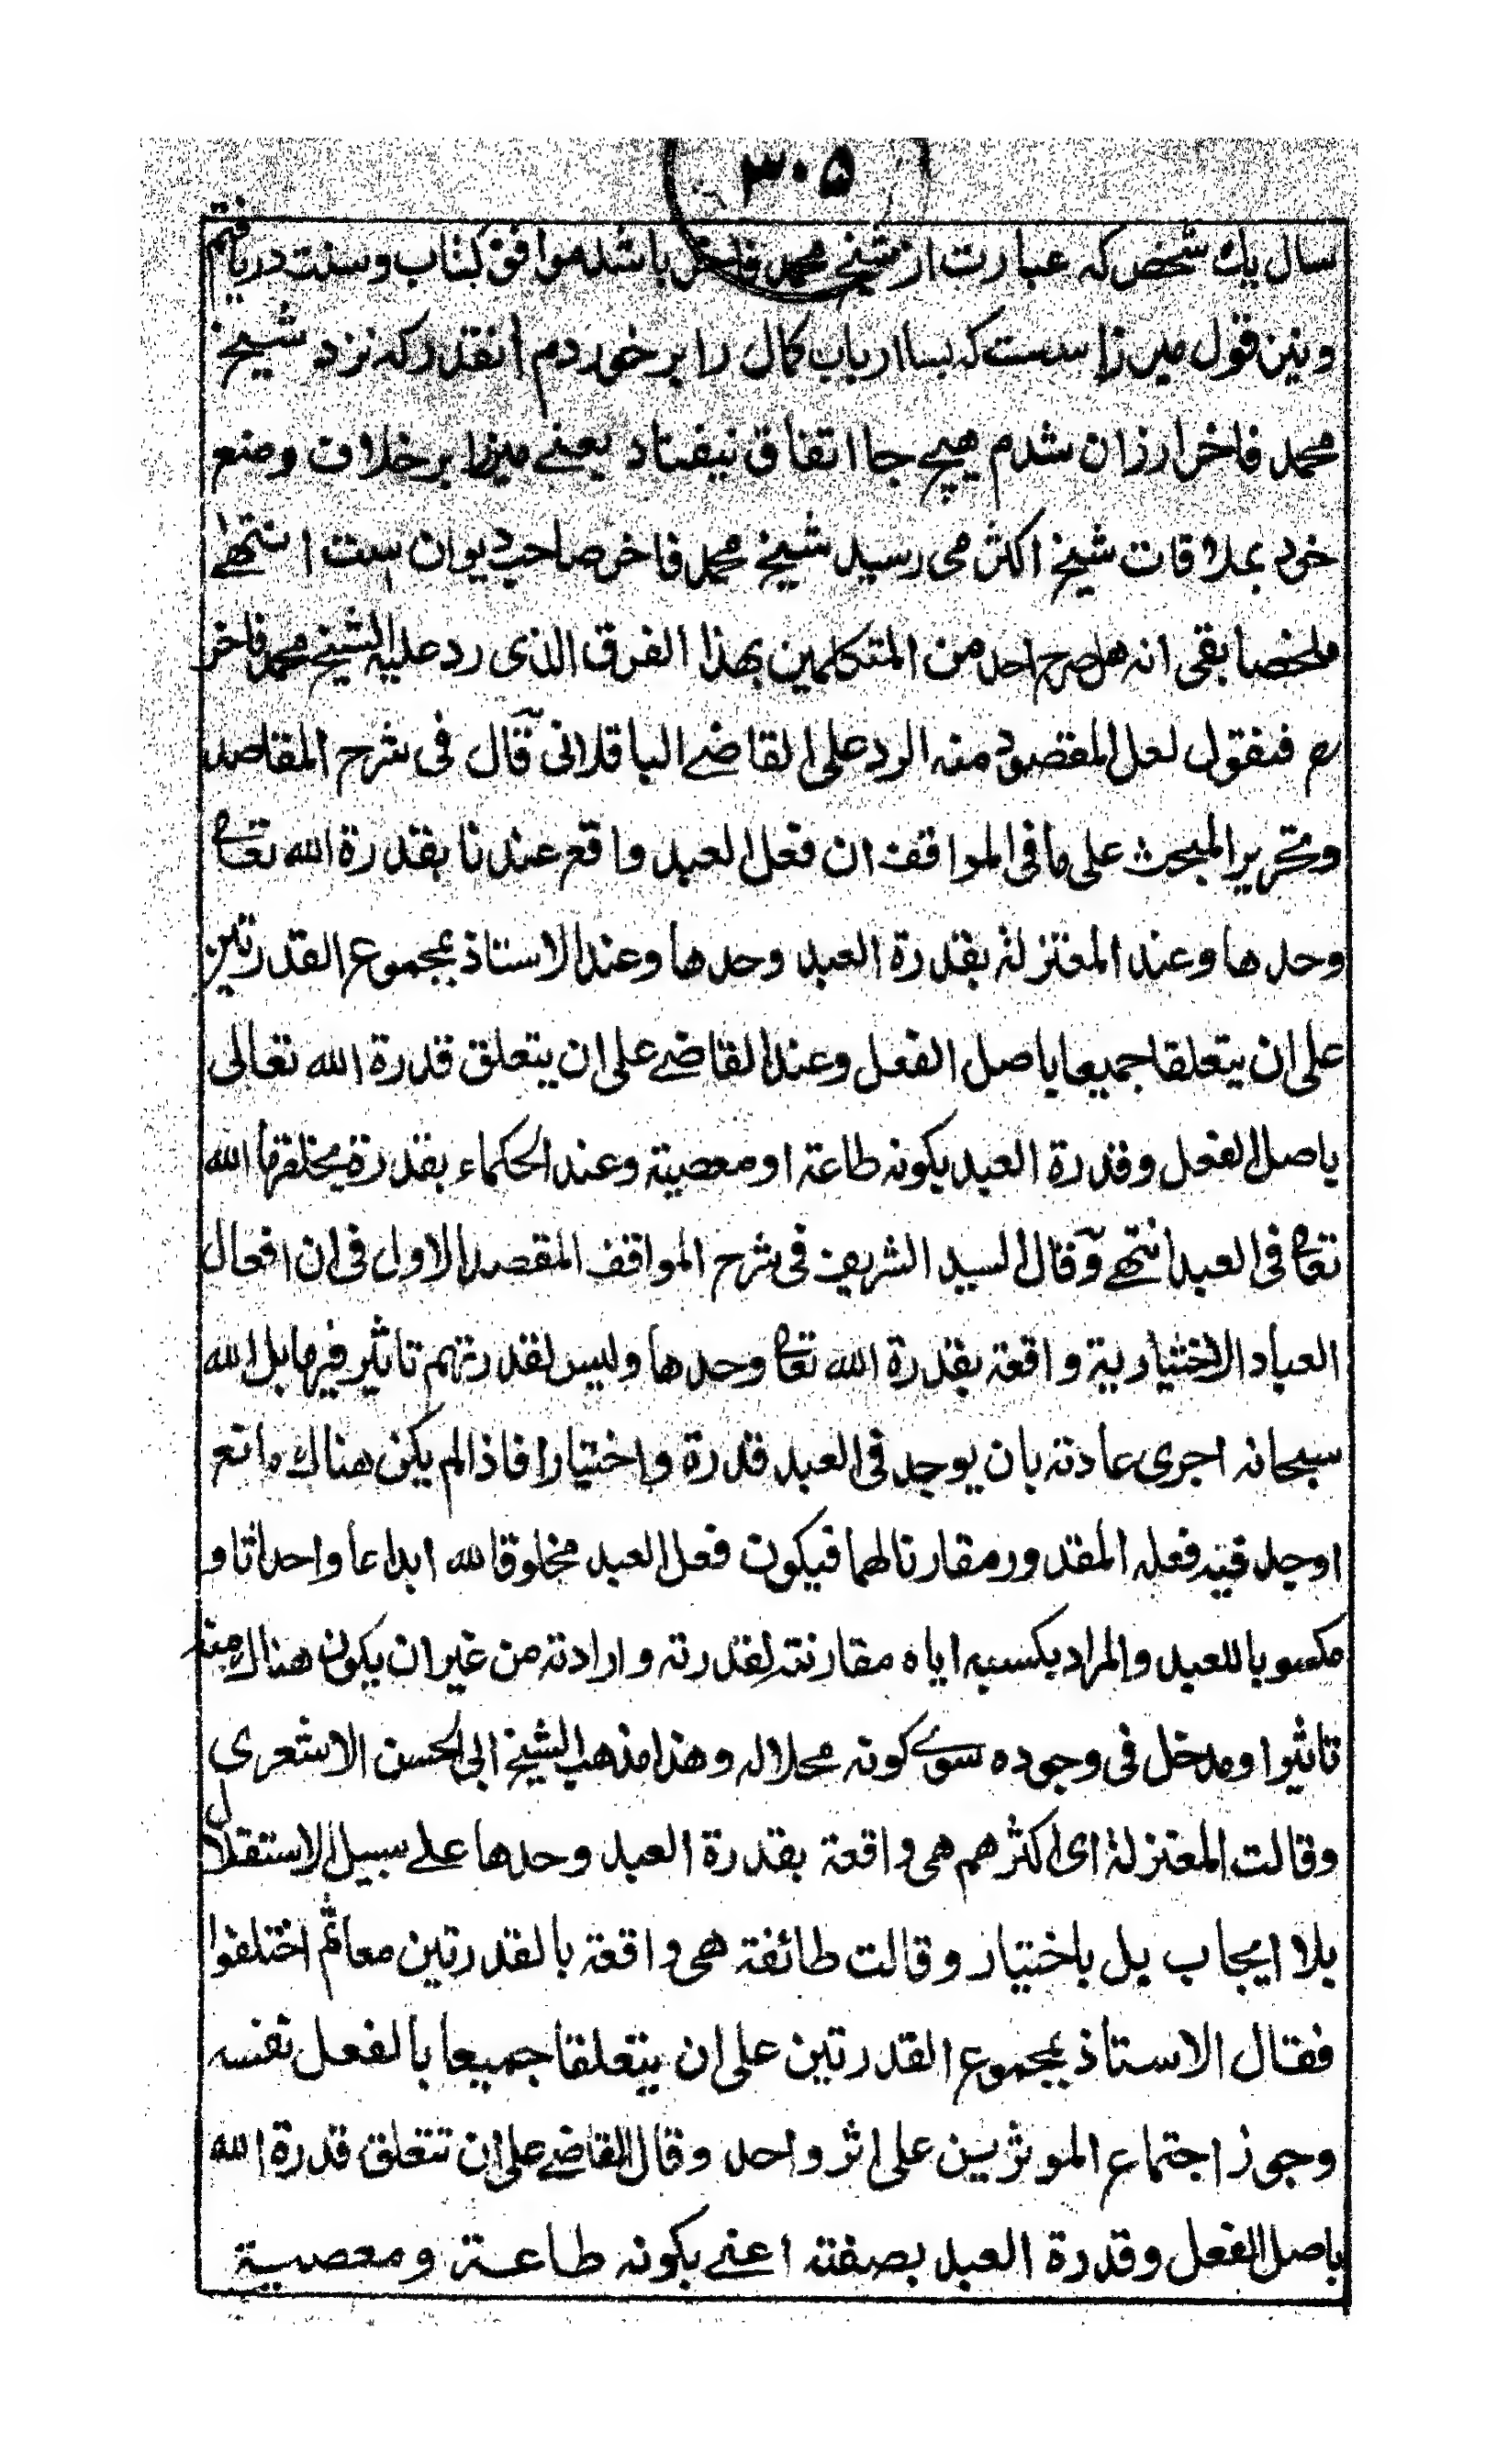 ۳۰۵
سال یک شخص که عبارت از شیخ محمد فاخر باشد موافق کتاب و سنت دریافتم
ونیز قول میرزا ست که بسا ارباب کمال را برخوردم انقدر که نزد شیخ
محمد فاخر ارزان شدم هیچ جا اتفاق نیفتاد یعنے میرزا برخلاف وضع
خود بملاقات شیخ اکثر می رسید شیخ محمد فاخر صاحب دیوان ست انتھے
ملخصا بقی انه هل صرح احد من المتکلمین بهذا الفرق الذی رد علیه الشیخ محمد فاخر
رح فنقول لعل المقصود منه الرد علی القاضے الباقلانی قال فی شرح المقاصد
وتحریر المبحث علی ما فی المواقف ان فعل العبد واقع عندنا بقدرة الله تعالے
وحدها وعند المعتزلة بقدرة العبد وحدها وعند الاستاذ بمجموع القدرتین
علی ان یتعلقا جمیعا باصل الفعل وعند القاضے علی ان یتعلق قدرة الله تعالی
باصل الفعل وقدرة العبد بکونه طاعة او معصیة وعند الحکماء بقدرة یخلقها الله
تعالے فی العبد انتھے وقال السید الشریف فی شرح المواقف المقصد الاول فی ان افعال
العباد الاختیاریة واقعة بقدرة الله تعالے وحدها ولیس لقدرتهم تاثیر فیها بل الله
سبحانه اجری عادته بان یوجد فی العبد قدرة واختیارا فاذا لم یکن هناك مانع
اوجد فیه فعله المقدور مقارنا لهما فیکون فعل العبد مخلوقا لله ابداعا واحداثا و
مکسوبا للعبد والمراد بکسبه ایاه مقارنته لقدرته وارادته من غیر ان یکون هناك منه
تاثیرا ومدخل فی وجوده سوے کونه محلا له وهذا مذهب الشیخ ابی الحسن الاشعری
وقالت المعتزلة ای اکثرهم هی واقعة بقدرة العبد وحدها علے سبیل الاستقلال
بلا ایجاب بل باختیار وقالت طائفة هی واقعة بالقدرتین معا ثم اختلفوا
فقال الاستاذ بمجموع القدرتین علی ان یتعلقا جمیعا بالفعل نفسه
وجوز اجتماع الموثرین علی اثر واحد وقال القاضے علی ان تتعلق قدرة الله
باصل الفعل وقدرة العبد بصفته اعنے بکونه طاعة ومعصیة